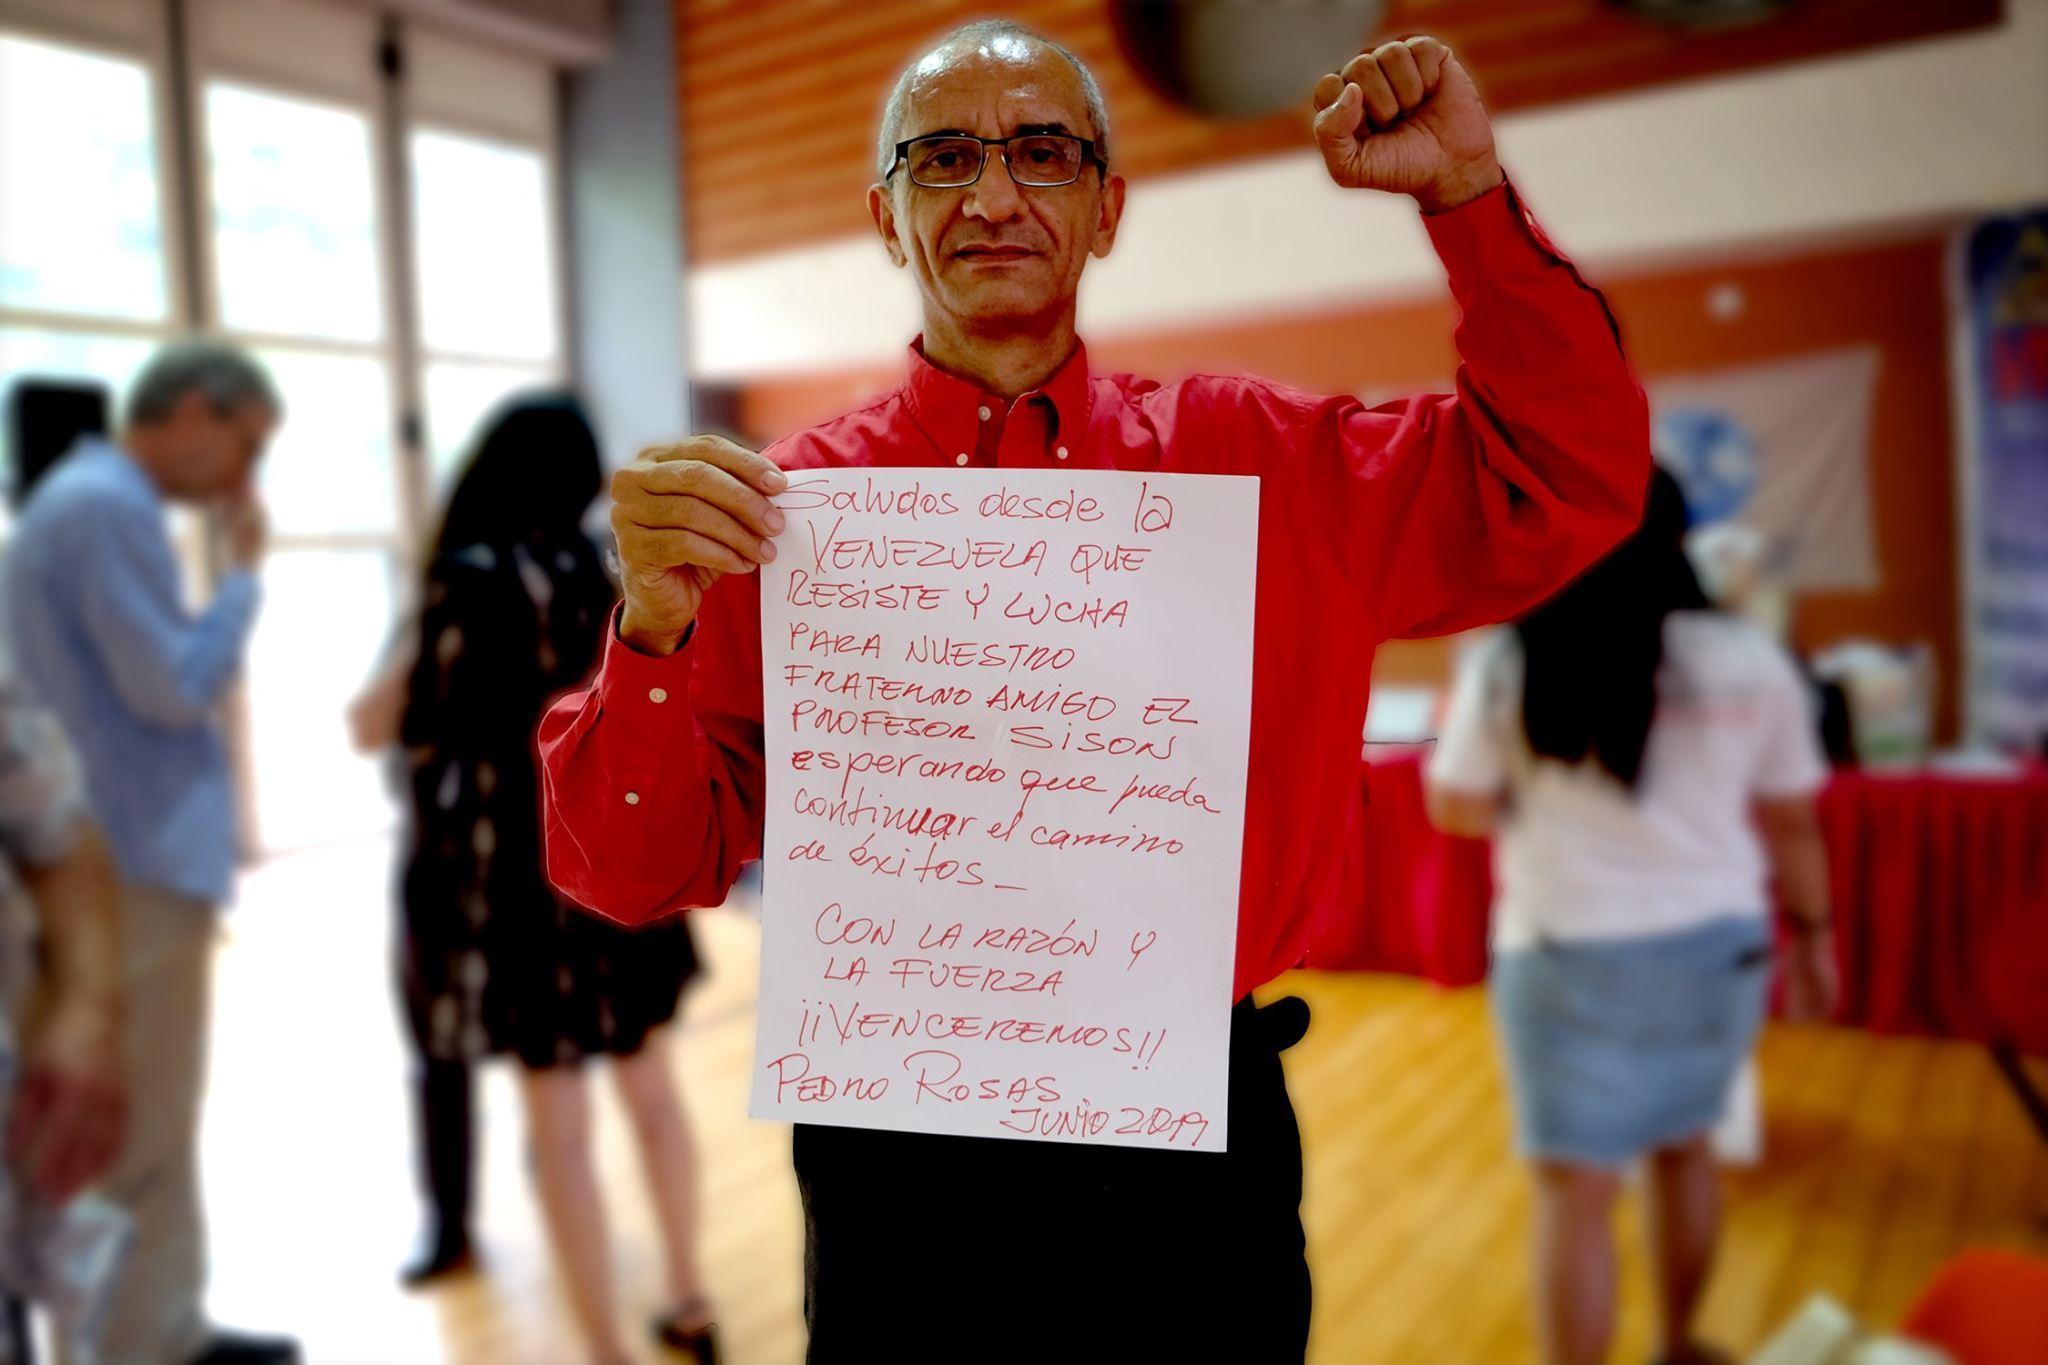 Saludos desde la
VENEZUELA QUE
RESISTE Y LUCHA
PARA NUESTRO
FRATERNO AMIGO EL
PROFESOR SISON
esperando que pueda
continuar el camino
de éxitos_
CON LA RAZÓN Y
LA FUERZA
¡¡VENCEREMOS!!
PEDRO ROSAS
JUNIO 2019